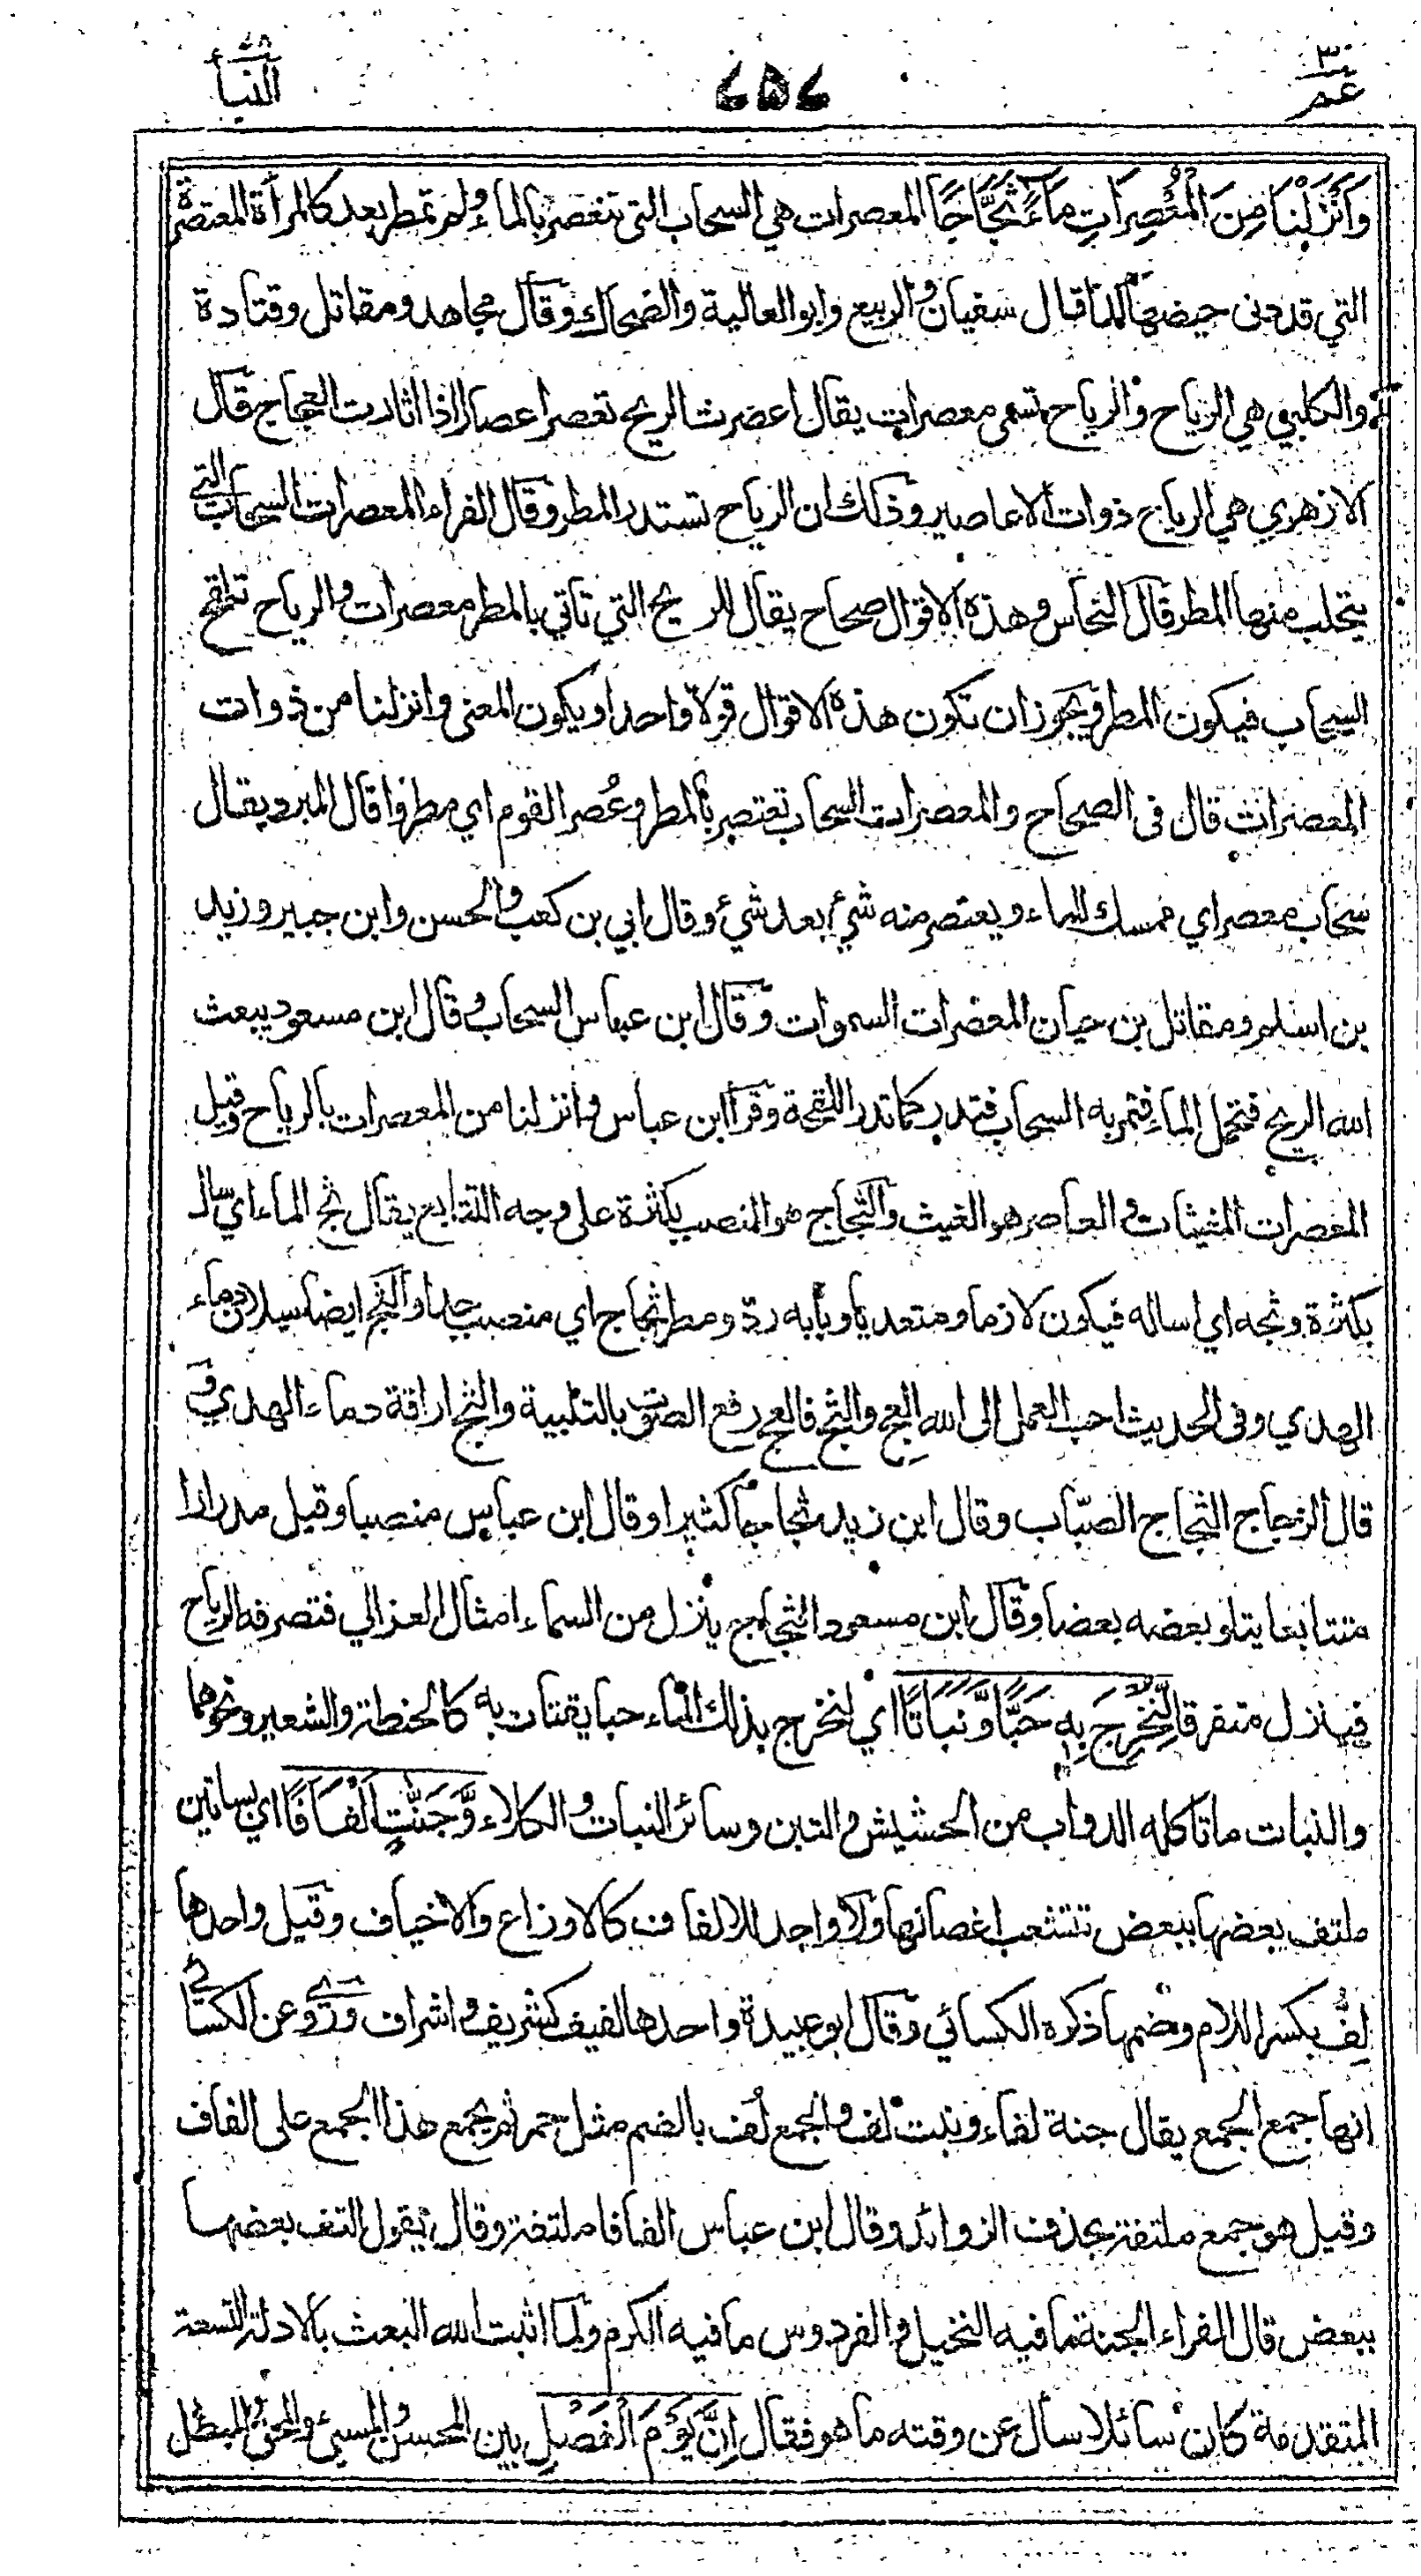 عم ٣٠
٤٥٤
النبأ ٧٨
وَأَنْزَلْنَا مِنَ الْمُعْصِرَاتِ مَاءً ثَجَّاجًا المعصرات هي السحاب التي تنعصر بالماء ولم تمطر بعد كالمرأة المعتصرة
التي قد دنى حيضها كذا قال سفيان والربيع وابو العالية والضحاك وقال مجاهد ومقاتل وقتادة
والكلبي هي الرياح والرياح تسمى معصرات يقال اعصرت الريح تعصر اعصارا اذا اثارت العجاج قال
الازهري هي الرياح ذوات الاعاصير وذلك ان الرياح تستدر المطر وقال الفراء المعصرات السحاب التي
يتحلب منها المطر قال النحاس وهذه الاقوال صحاح يقال للريح التي تاتي بالمطر معصرات والرياح تلقح
السحاب فيكون المطر ويجوز ان تكون هذه الاقوال قولا واحدا ويكون المعنى وانزلنا من ذوات
المعصرات قال فى الصحاح والمعصرات السحاب تعتصر بالمطر وعُصر القوم اي مطروا قال المبرد يقال
سحاب معصر اي ممسك للماء ويعتصر منه شئ بعد شئ وقال ابي بن كعب والحسن وابن جبير وزيد
بن اسلم ومقاتل بن حيان المعصرات السموات وقال ابن عباس السحاب وقال ابن مسعود يبعث
الله الريح فتحمل الماء فتمر به السحاب فتدر كما تدر اللقحة وقرأ ابن عباس وانزلنا من المعصرات بالرياح وقيل
المعصرات المغيثات والعاصر هو الغيث والثجاج هو المنصب بكثرة على وجه التتابع يقال ثج الماء اي سال
بكثرة وثجه اي اساله فيكون لازما ومتعديا وبابه ردّ ومطر ثجاج اي منصب جدا والثج ايضا سيلان دماء
الهدي وفى الحديث احب العمل الى الله العج والثج فالعج رفع الصوت بالتلبية والثج اراقة دماء الهدي و
قال الزجاج الثجاج الصبّاب وقال ابن زيد ثجاجا كثيرا وقال ابن عباس منصبا وقيل مدرارا
متتابعا يتلو بعضه بعضا وقال ابن مسعود الثجاج ينزل من السماء امثال العزالي فتصرفه الرياح
فينزل متفرقا لِّنُخْرِجَ بِهِ حَبًّا وَّنَبَاتًا اي لنخرج بذلك الماء حبا يقتات به كالحنطة والشعير ونحوها
والنبات ما تاكله الدواب من الحشيش والتبن وسائر النبات والكلاء وَّجَنّٰتٍ اَلْفَافًا اي بساتين
ملتف بعضها ببعض تتشعب اغصانها ولا واحد للالفاف كالاوزاع والاخياف وقيل واحدها
لِفّ بكسر اللام وضمها ذكره الكسائي وقال ابو عبيدة واحدها لفيف كشريف واشراف وروي عن الكسائي
انها جمع الجمع يقال جنة لفاء ونبت لف والجمع لُف بالضم مثل حمر ثم يجمع هذا الجمع على الفاف
وقيل هو جمع ملتفة بحذف الزوائد وقال ابن عباس الفافا ملتفة وقال يقول التف بعضها
ببعض قال الفراء الجنة ما فيه النخيل والفردوس ما فيه الكرم ولما اثبت الله البعث بالادلة التسعة
المتقدمة كان سائلا سأل عن وقته ما هو فقال اِنَّ يَوْمَ الْفَصْلِ بين المحسن والمسيئ والمحق والمبطل